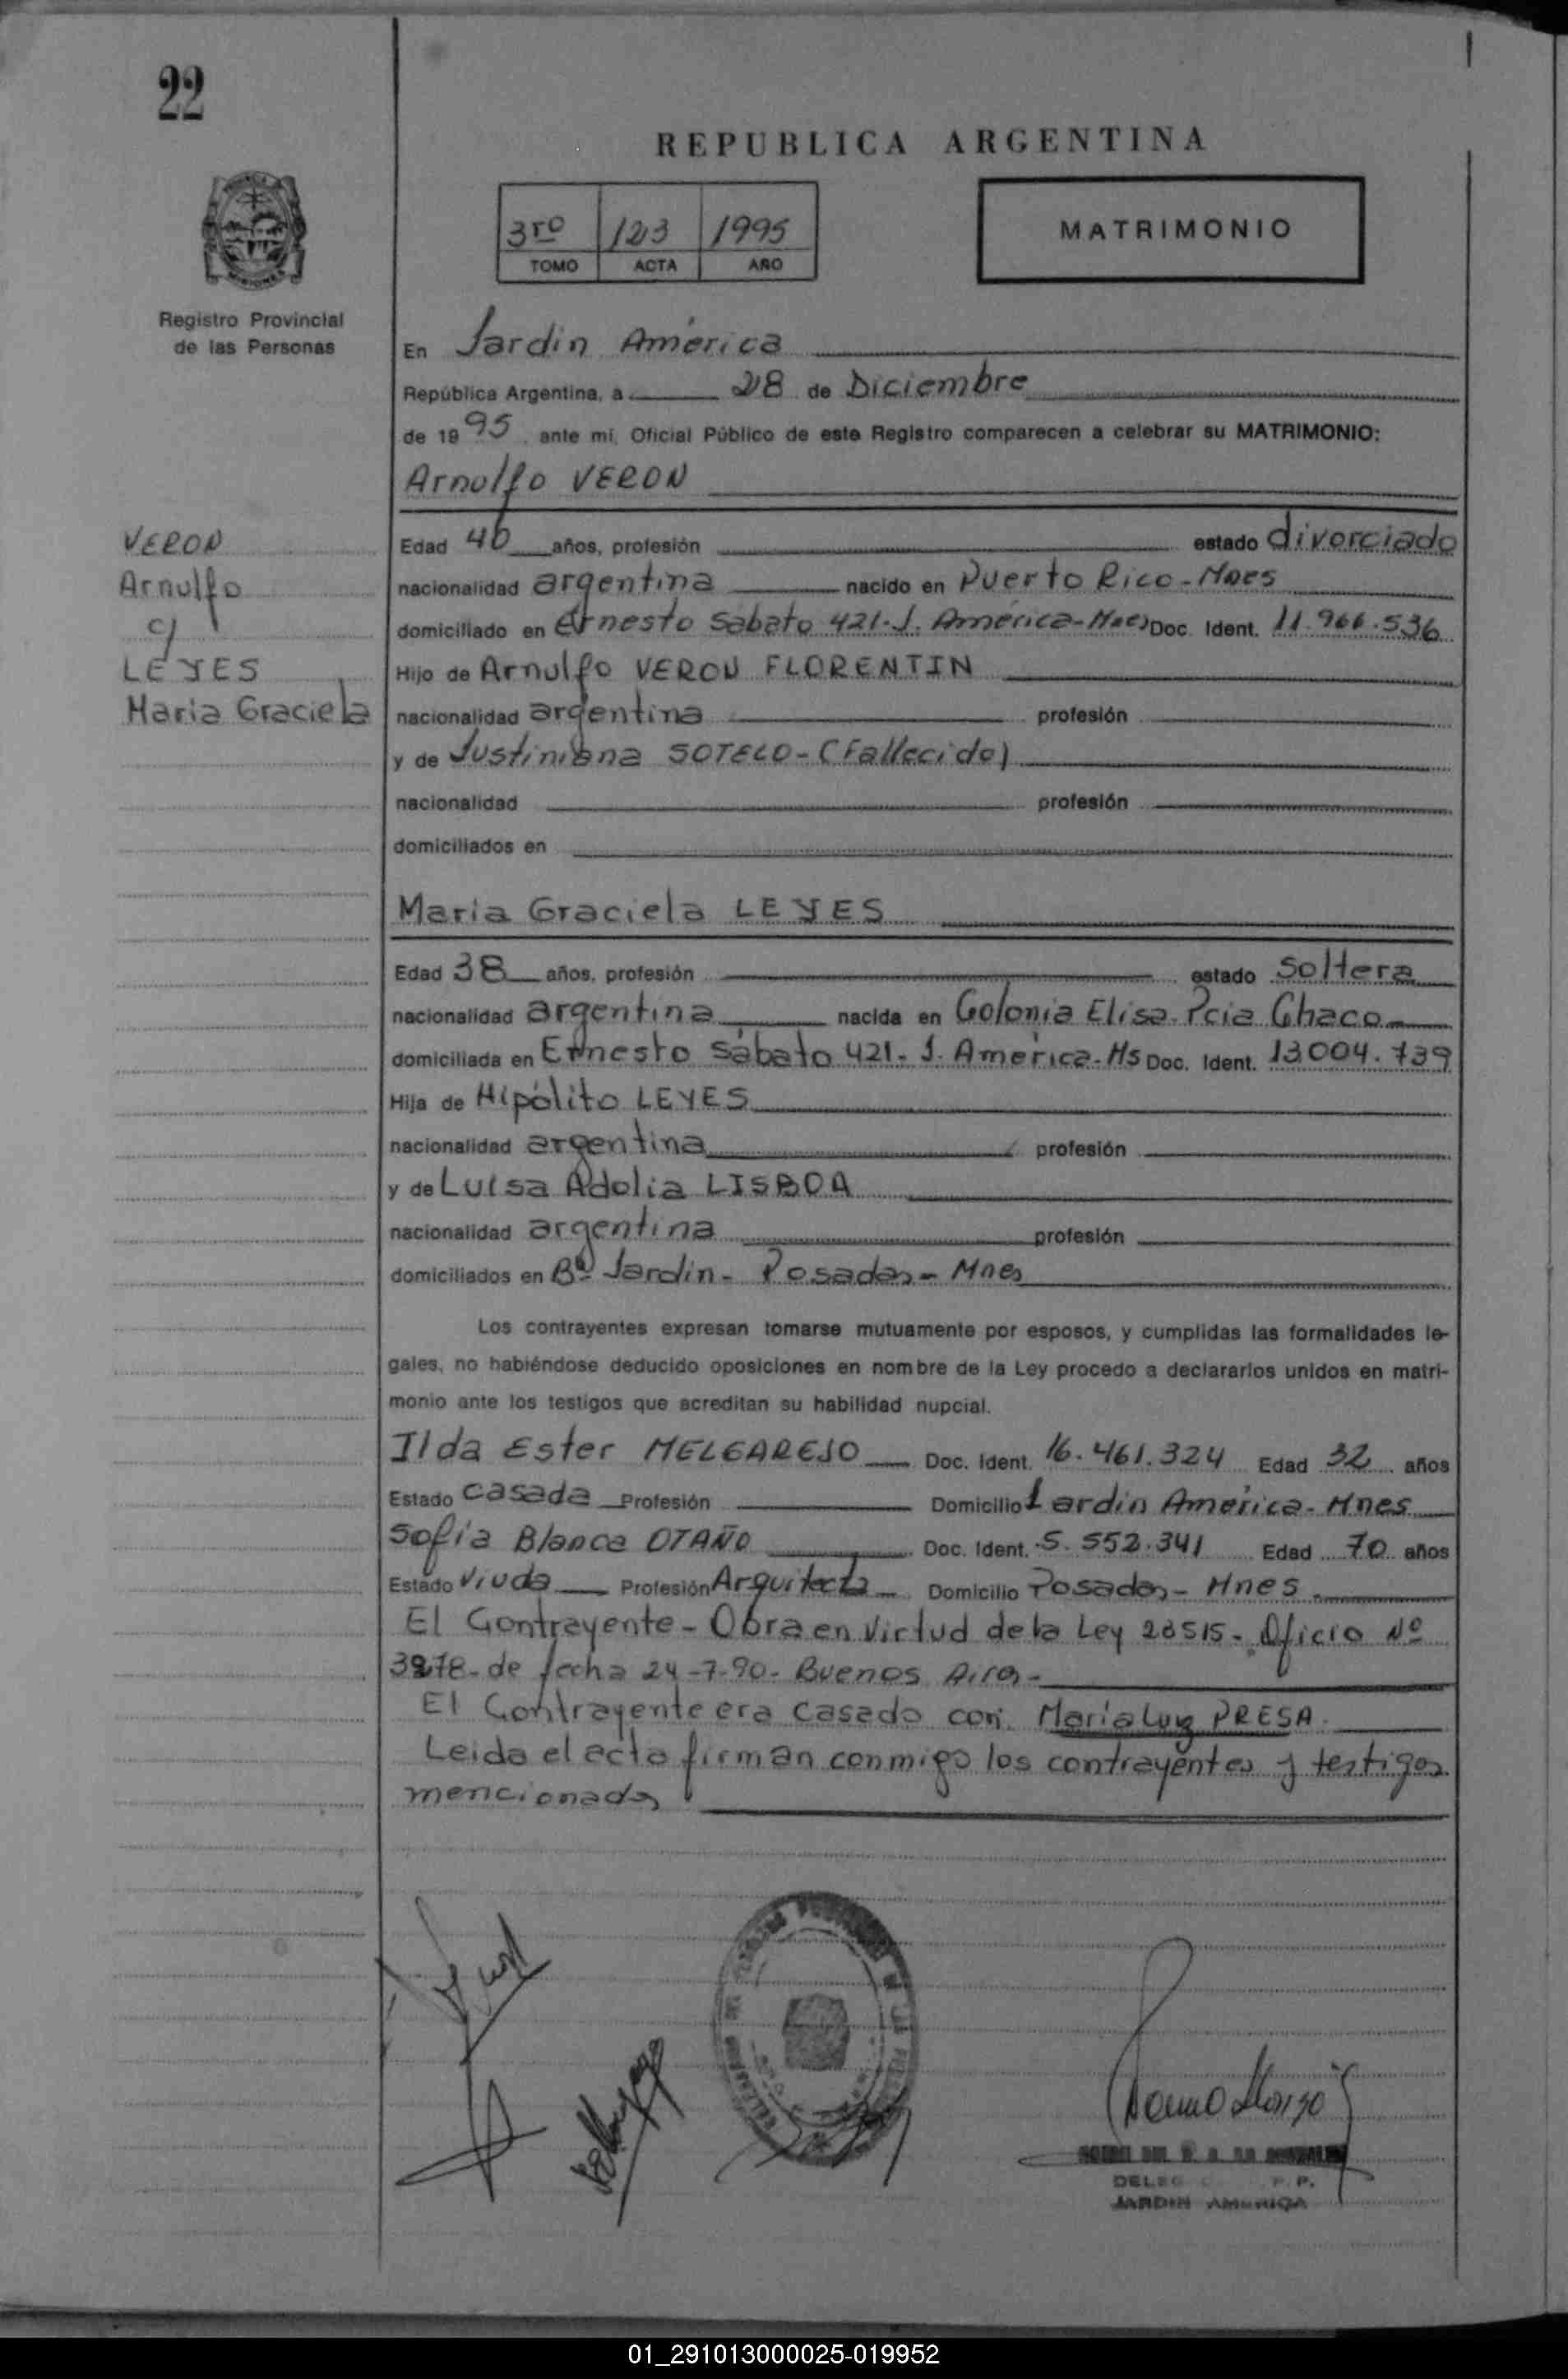 22
REPUBLICA ARGENTINA
3ro 123 1995
TOMO ACTA AÑO
MATRIMONIO
Registro Provincial
de las Personas
En Jardin América
República Argentina, a 28 de Diciembre
de 1995, ante mí, Oficial Público de este Registro comparecen a celebrar su MATRIMONIO:
Arnulfo VERON
VERON
Arnulfo
c/
LEYES
Maria Graciela
Edad 40 años, profesión estado divorciado
nacionalidad argentina nacido en Puerto Rico - Mnes
domiciliado en Ernesto Sabato 421. J. América - Mnes Doc. Ident. 11.966.536
Hijo de Arnulfo VERON FLORENTIN
nacionalidad argentina profesión
y de Justiniana SOTELO - (Fallecido)
nacionalidad profesión
domiciliados en
Maria Graciela LEYES
Edad 38 años, profesión estado soltera
nacionalidad argentina nacida en Colonia Elisa. Pcia Chaco
domiciliada en Ernesto Sábato 421 - J. América - Ms Doc. Ident. 13.004.739
Hija de Hipólito LEYES
nacionalidad argentina profesión
y de Luisa Adolia LISBOA
nacionalidad argentina profesión
domiciliados en Bº Jardin - Posadas - Mnes
Los contrayentes expresan tomarse mutuamente por esposos, y cumplidas las formalidades le-
gales, no habiéndose deducido oposiciones en nombre de la Ley procedo a declararlos unidos en matri-
monio ante los testigos que acreditan su habilidad nupcial.
Ilda Ester MELGAREJO Doc. Ident. 16.461.324 Edad 32 años
Estado casada Profesión Domicilio Jardin América - Mnes
Sofía Blanca OTAÑO Doc. Ident. 5.552.341 Edad 70 años
Estado Viuda Profesión Arquitecta Domicilio Posadas - Mnes
El Contrayente - Obra en virtud de la Ley 23515 - Oficio Nº
3278 - de fecha 24-7-90 - Buenos Aires -
El Contrayente era casado con María Luz PRESA.
Leida el acta firman conmigo los contrayentes y testigos
mencionados
JARDIN AMERICA
01_291013000025-019952